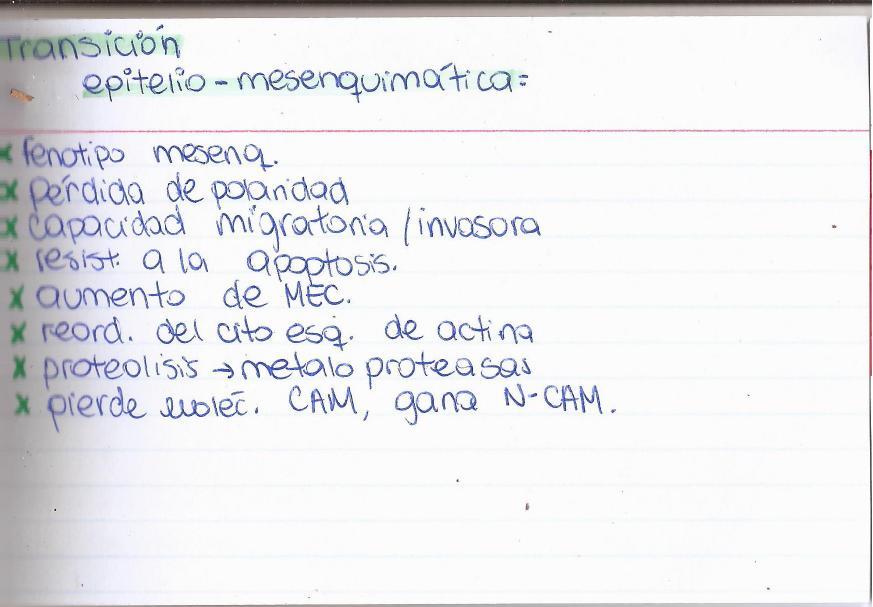 Transición
epitelio-mesenquimática=
x fenotipo mesenq.
x pérdida de polaridad
x capacidad migratoria / invasora
x resist. a la apoptosis.
x aumento de MEC.
x reord. del cito esq. de actina
x proteolisis → metalo proteasas
x pierde molec. CAM, gana N-CAM.